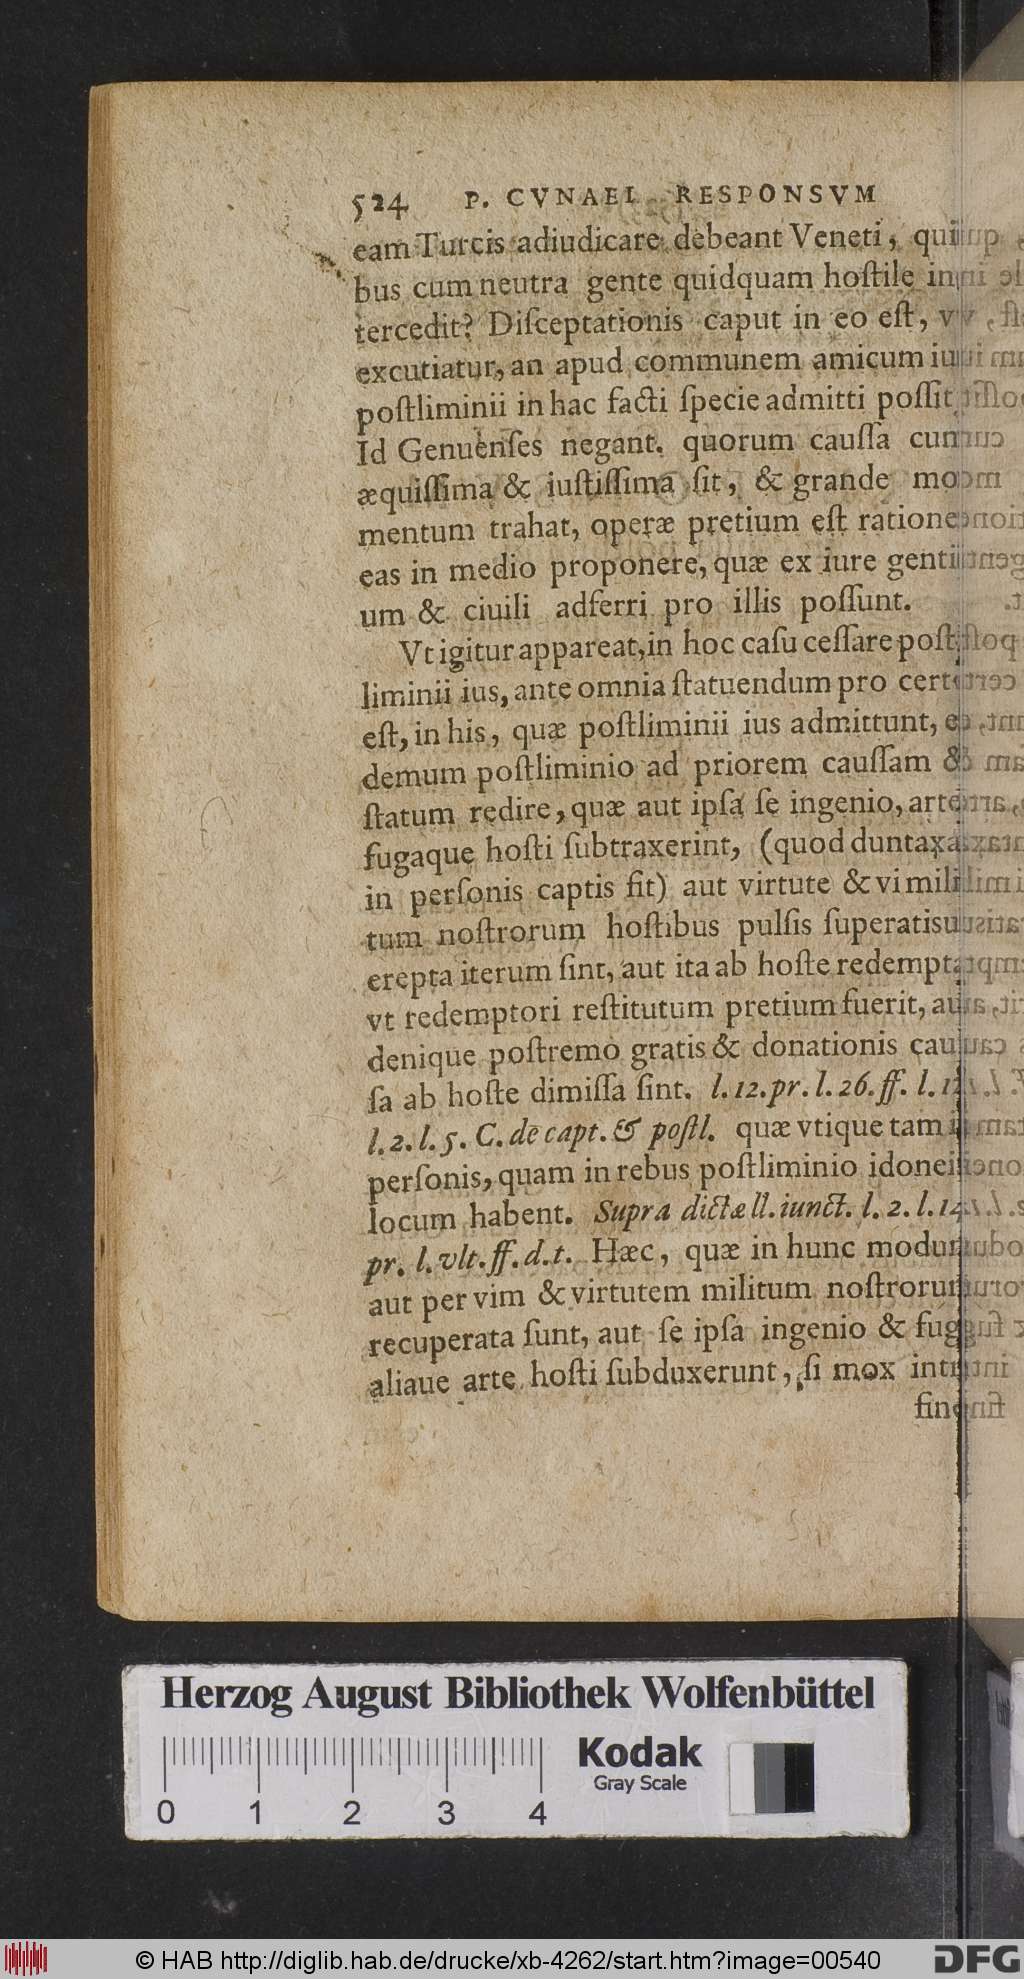 524 P. CVNAEI RESPONSVM
eam Turcis adiudicare debeant Veneti, qui
bus cum neutra gente quidquam hoſtile in
tercedit? Diſceptationis caput in eo eſt, v
excutiatur, an apud communem amicum iu
poſtliminii in hac facti ſpecie admitti poſſit
Id Genuenſes negant. quorum cauſſa cum
æquiſſima & iuſtiſſima ſit, & grande mo
mentum trahat, operæ pretium eſt ratione
eas in medio proponere, quæ ex iure genti
um & ciuili adferri pro illis poſſunt.
Vt igitur appareat, in hoc caſu ceſſare poſt
liminii ius, ante omnia ſtatuendum pro cert
eſt, in his, quæ poſtliminii ius admittunt, e
demum poſtliminio ad priorem cauſſam &
ſtatum redire, quæ aut ipſa ſe ingenio, arte
fugaque hoſti ſubtraxerint, (quod duntaxa
in perſonis captis fit) aut virtute & vi mili
tum noſtrorum hoſtibus pulſis ſuperatisu
erepta iterum ſint, aut ita ab hoſte redempta
vt redemptori reſtitutum pretium fuerit, au
denique poſtremo gratis & donationis cau
ſa ab hoſte dimiſſa ſint. l. 12. pr. l. 26. ff. l.
l. 2. l. 5. C. de capt. & poſtl. quæ vtique tam i
perſonis, quam in rebus poſtliminio idonei
locum habent. Supra dictæ ll. iunct. l. 2. l. 14.
pr. l. vlt. ff. d. t. Hæc, quæ in hunc modum
aut per vim & virtutem militum noſtrorum
recuperata ſunt, aut ſe ipſa ingenio & fug
aliaue arte hoſti ſubduxerunt, ſi mox intr
fin
Herzog August Bibliothek Wolfenbüttel
Kodak
Gray Scale
0 1 2 3 4
© HAB http://diglib.hab.de/drucke/xb-4262/start.htm?image=00540
DFG